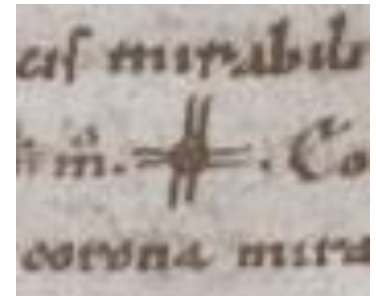 cis mirabilis
m̊. . Co
corona mira